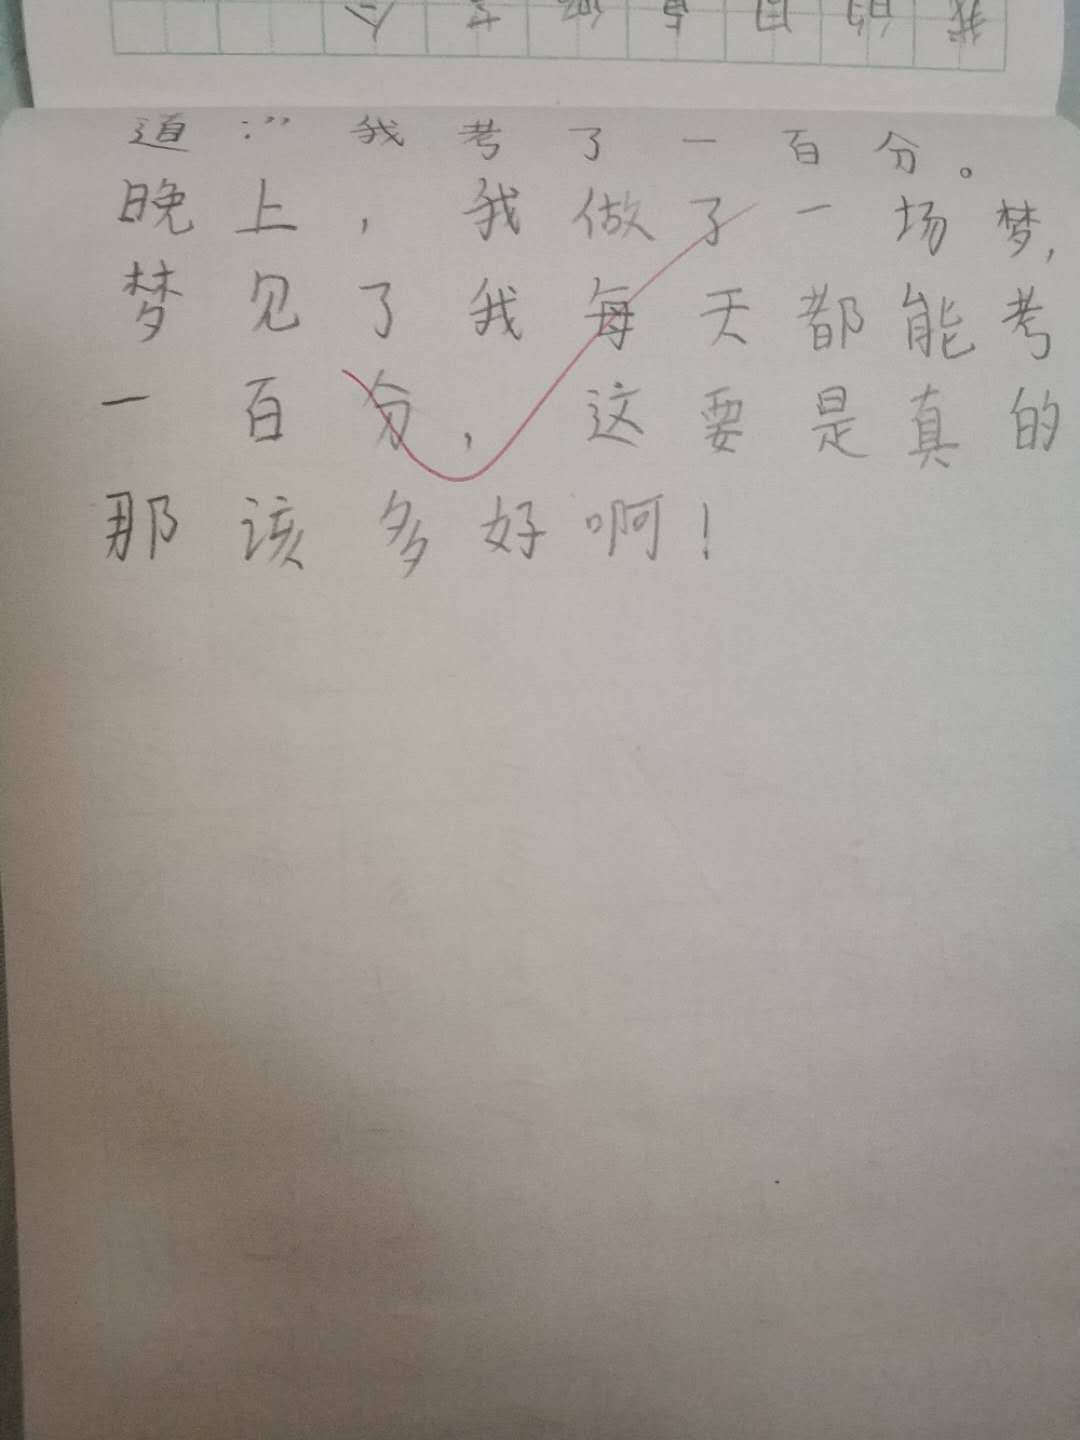 道:"我考了一百分。
晚上,我做了一场梦,
梦见了我每天都能考
一百分,这要是真的
那该多好啊!